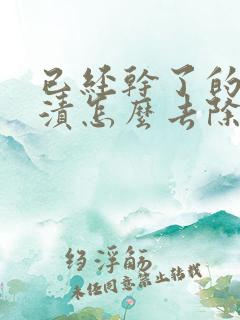 已經幹了的
漬怎麼去除
绉浮觞
未经同意禁止转载